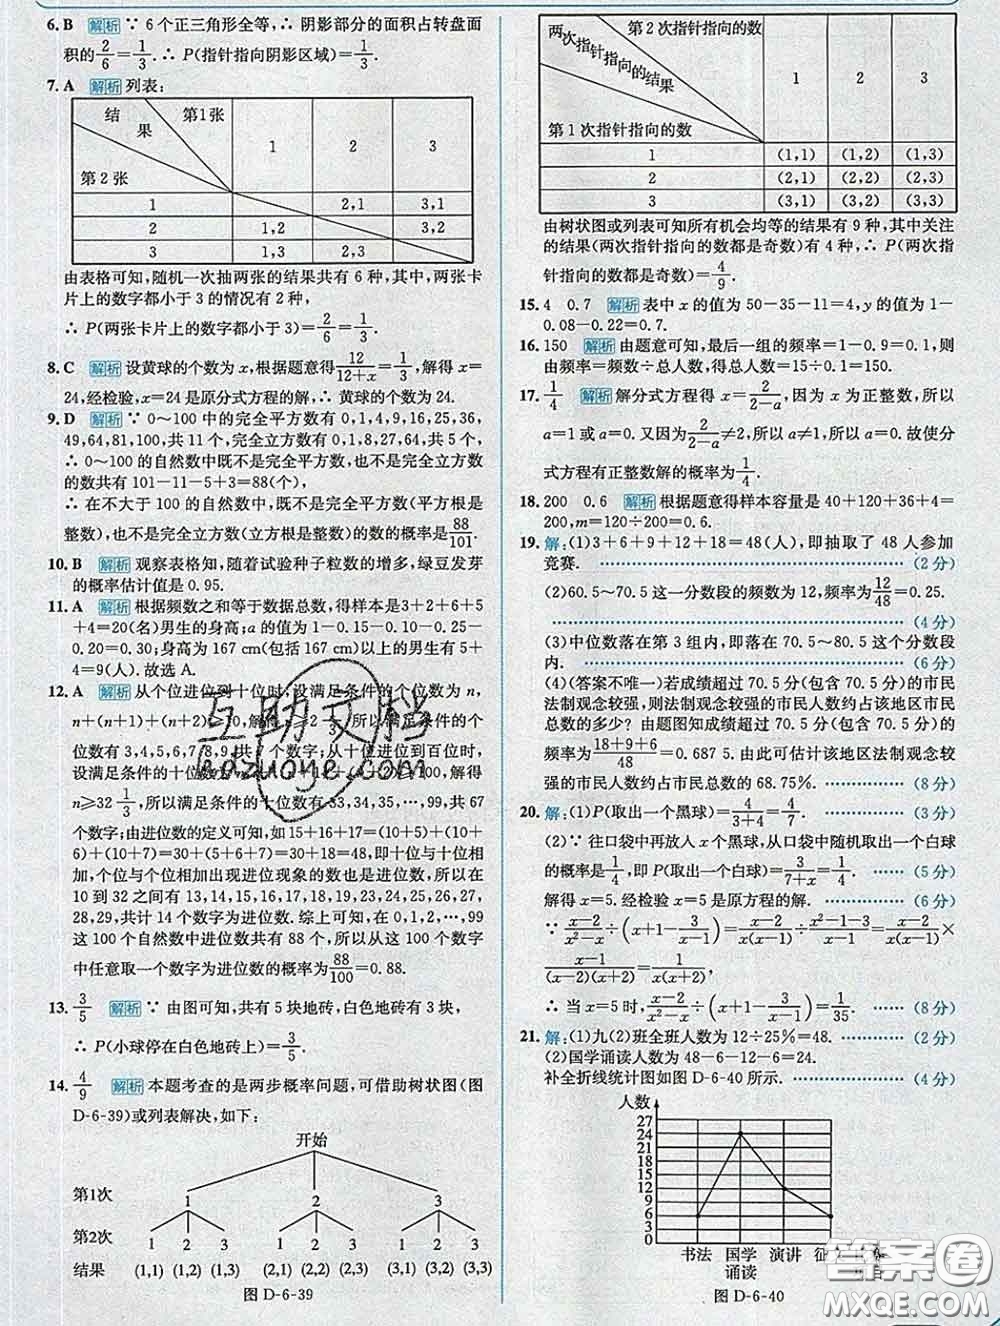 6. B 解析 ∵ 6 个正三角形全等，∴ 阴影部分的面积占转盘面
积的2/6=1/3. ∴ P(指针指向阴影区域)=1/3.
7. A 解析 列表：
结果 第1张 第2张 1 2 3
1 2,1 3,1
2 1,2 3,2
3 1,3 2,3
由表格可知，随机一次抽两张的结果共有 6 种，其中，两张卡
片上的数字都小于 3 的情况有 2 种，
∴ P(两张卡片上的数字都小于 3)=2/6=1/3.
8. C 解析 设黄球的个数为 x，根据题意得12/(12+x)=1/3，解得 x=
24，经检验，x=24 是原分式方程的解，∴ 黄球的个数为 24.
9. D 解析 ∵ 0～100 中的完全平方数有 0,1,4,9,16,25,36,
49,64,81,100，共 11 个，完全立方数有 0,1,8,27,64，共 5 个，
∴ 0～100 的自然数中既不是完全平方数，也不是完全立方数
的数共有 101-11-5+3=88(个)，
∴ 在不大于 100 的自然数中，既不是完全平方数(平方根是
整数)，也不是完全立方数(立方根是整数)的数的概率是88/101.
10. B 解析 观察表格知，随着试验种子粒数的增多，绿豆发芽
的概率估计值是 0.95.
11. A 解析 根据频数之和等于数据总数，得样本是3+2+6+5
+4=20(名)男生的身高；a 的值为 1-0.15-0.10-0.25-
0.20=0.30；身高为 167 cm(包括 167 cm)以上的男生有 5+
4=9(人). 故选 A.
12. A 解析 从个位进位到十位时，设满足条件的个位数为 n，
n+(n+1)+(n+2)≥10，解得 n≥2 1/3，所以满足条件的个
位数有 3,4,5,6,7,8,9，共 7 个数字；从十位进位到百位时，
设满足条件的十位数为 n，n+n+n+(n+2)≥100，解得
n≥32 1/3，所以满足条件的十位数有 33,34,35,…,99，共 67
个数字；由进位数的定义可知，如 15+16+17=(10+5)+(10+
6)+(10+7)=30+(5+6+7)=30+18=48，即十位与十位相
加，个位与个位相加出现进位现象的数也是进位数，所以在
10 到 32 之间有 13,14,15,16,17,18,19,23,24,25,26,27,
28,29，共计 14 个数字为进位数. 综上可知，在 0,1,2,…,99
这 100 个自然数中进位数共有 88 个，所以从这 100 个数字
中任意取一个数字为进位数的概率为88/100=0.88.
13. 3/5 解析 ∵ 由图可知，共有 5 块地砖，白色地砖有 3 块，
∴ P(小球停在白色地砖上)=3/5.
14. 4/9 解析 本题考查的是两步概率问题，可借助树状图(图
D-6-39)或列表解决，如下：
开始
第1次 1 2 3
第2次 1 2 3 1 2 3 1 2 3
结果 (1,1) (1,2) (1,3) (2,1) (2,2) (2,3) (3,1) (3,2) (3,3)
图 D-6-39
两次指针指向的结果 第 2 次指针指向的数 第 1 次指针指向的数 1 2 3
1 (1,1) (1,2) (1,3)
2 (2,1) (2,2) (2,3)
3 (3,1) (3,2) (3,3)
由树状图或列表可知所有机会均等的结果有 9 种，其中关注
的结果(两次指针指向的数都是奇数)有 4 种，∴ P(两次指
针指向的数都是奇数)=4/9.
15. 4 0.7 解析 表中 x 的值为 50-35-11=4，y 的值为 1-
0.08-0.22=0.7.
16. 150 解析 由题意可知，最后一组的频率=1-0.9=0.1，则
由频率=频数÷总人数，得总人数=15÷0.1=150.
17. 1/4 解析 解分式方程得 x=2/(2-a)，因为 x 为正整数，所以
a=1或 a=0. 又因为2/(2-a)≠2，所以 a≠1，所以 a=0. 故使分
式方程有正整数解的概率为1/4.
18. 200 0.6 解析 根据题意得样本容量是 40+120+36+4=
200，m=120÷200=0.6.
19. 解：(1)3+6+9+12+18=48(人)，即抽取了 48 人参加
竞赛. (2 分)
(2)60.5～70.5 这一分数段的频数为 12，频率为12/48=0.25.
(4 分)
(3)中位数落在第 3 组内，即落在 70.5～80.5 这个分数段
内. (6 分)
(4)(答案不唯一)若成绩超过 70.5 分(包含 70.5 分)的市民
法制观念较强，则法制观念较强的市民人数约占该地区市民
总数的多少？由题图知成绩超过 70.5 分(包含 70.5 分)的
频率为(18+9+6)/48=0.687 5. 由此可估计该地区法制观念较
强的市民人数约占市民总数的 68.75%. (8 分)
20. 解：(1)P(取出一个黑球)=4/(3+4)=4/7. (3 分)
(2)∵ 往口袋中再放入 x 个黑球，从口袋中随机取出一个白球
的概率是1/4，即 P(取出一个白球)=3/(7+x)=1/4. (5 分)
解得 x=5. 经检验 x=5 是原方程的解. (6 分)
∵ (x-2)/(x²-x)÷(x+1-3/(x-1))=(x-2)/(x(x-1))÷(x²-1-3)/(x-1)=(x-2)/(x(x-1))×
(x-1)/((x-2)(x+2))=1/(x(x+2))，
∴ 当 x=5 时，(x-2)/(x²-x)÷(x+1-3/(x-1))=1/35. (8 分)
21. 解：(1)九(2)班全班人数为 12÷25%=48. (2 分)
(2)国学诵读人数为 48-6-12-6=24.
补全折线统计图如图 D-6-40 所示. (4 分)
人数
27
24
21
18
15
12
9
6
3
0
书法 国学诵读 演讲 征
图 D-6-40
互助文档
hdzuoye.com
答案圈
MXQE.COM